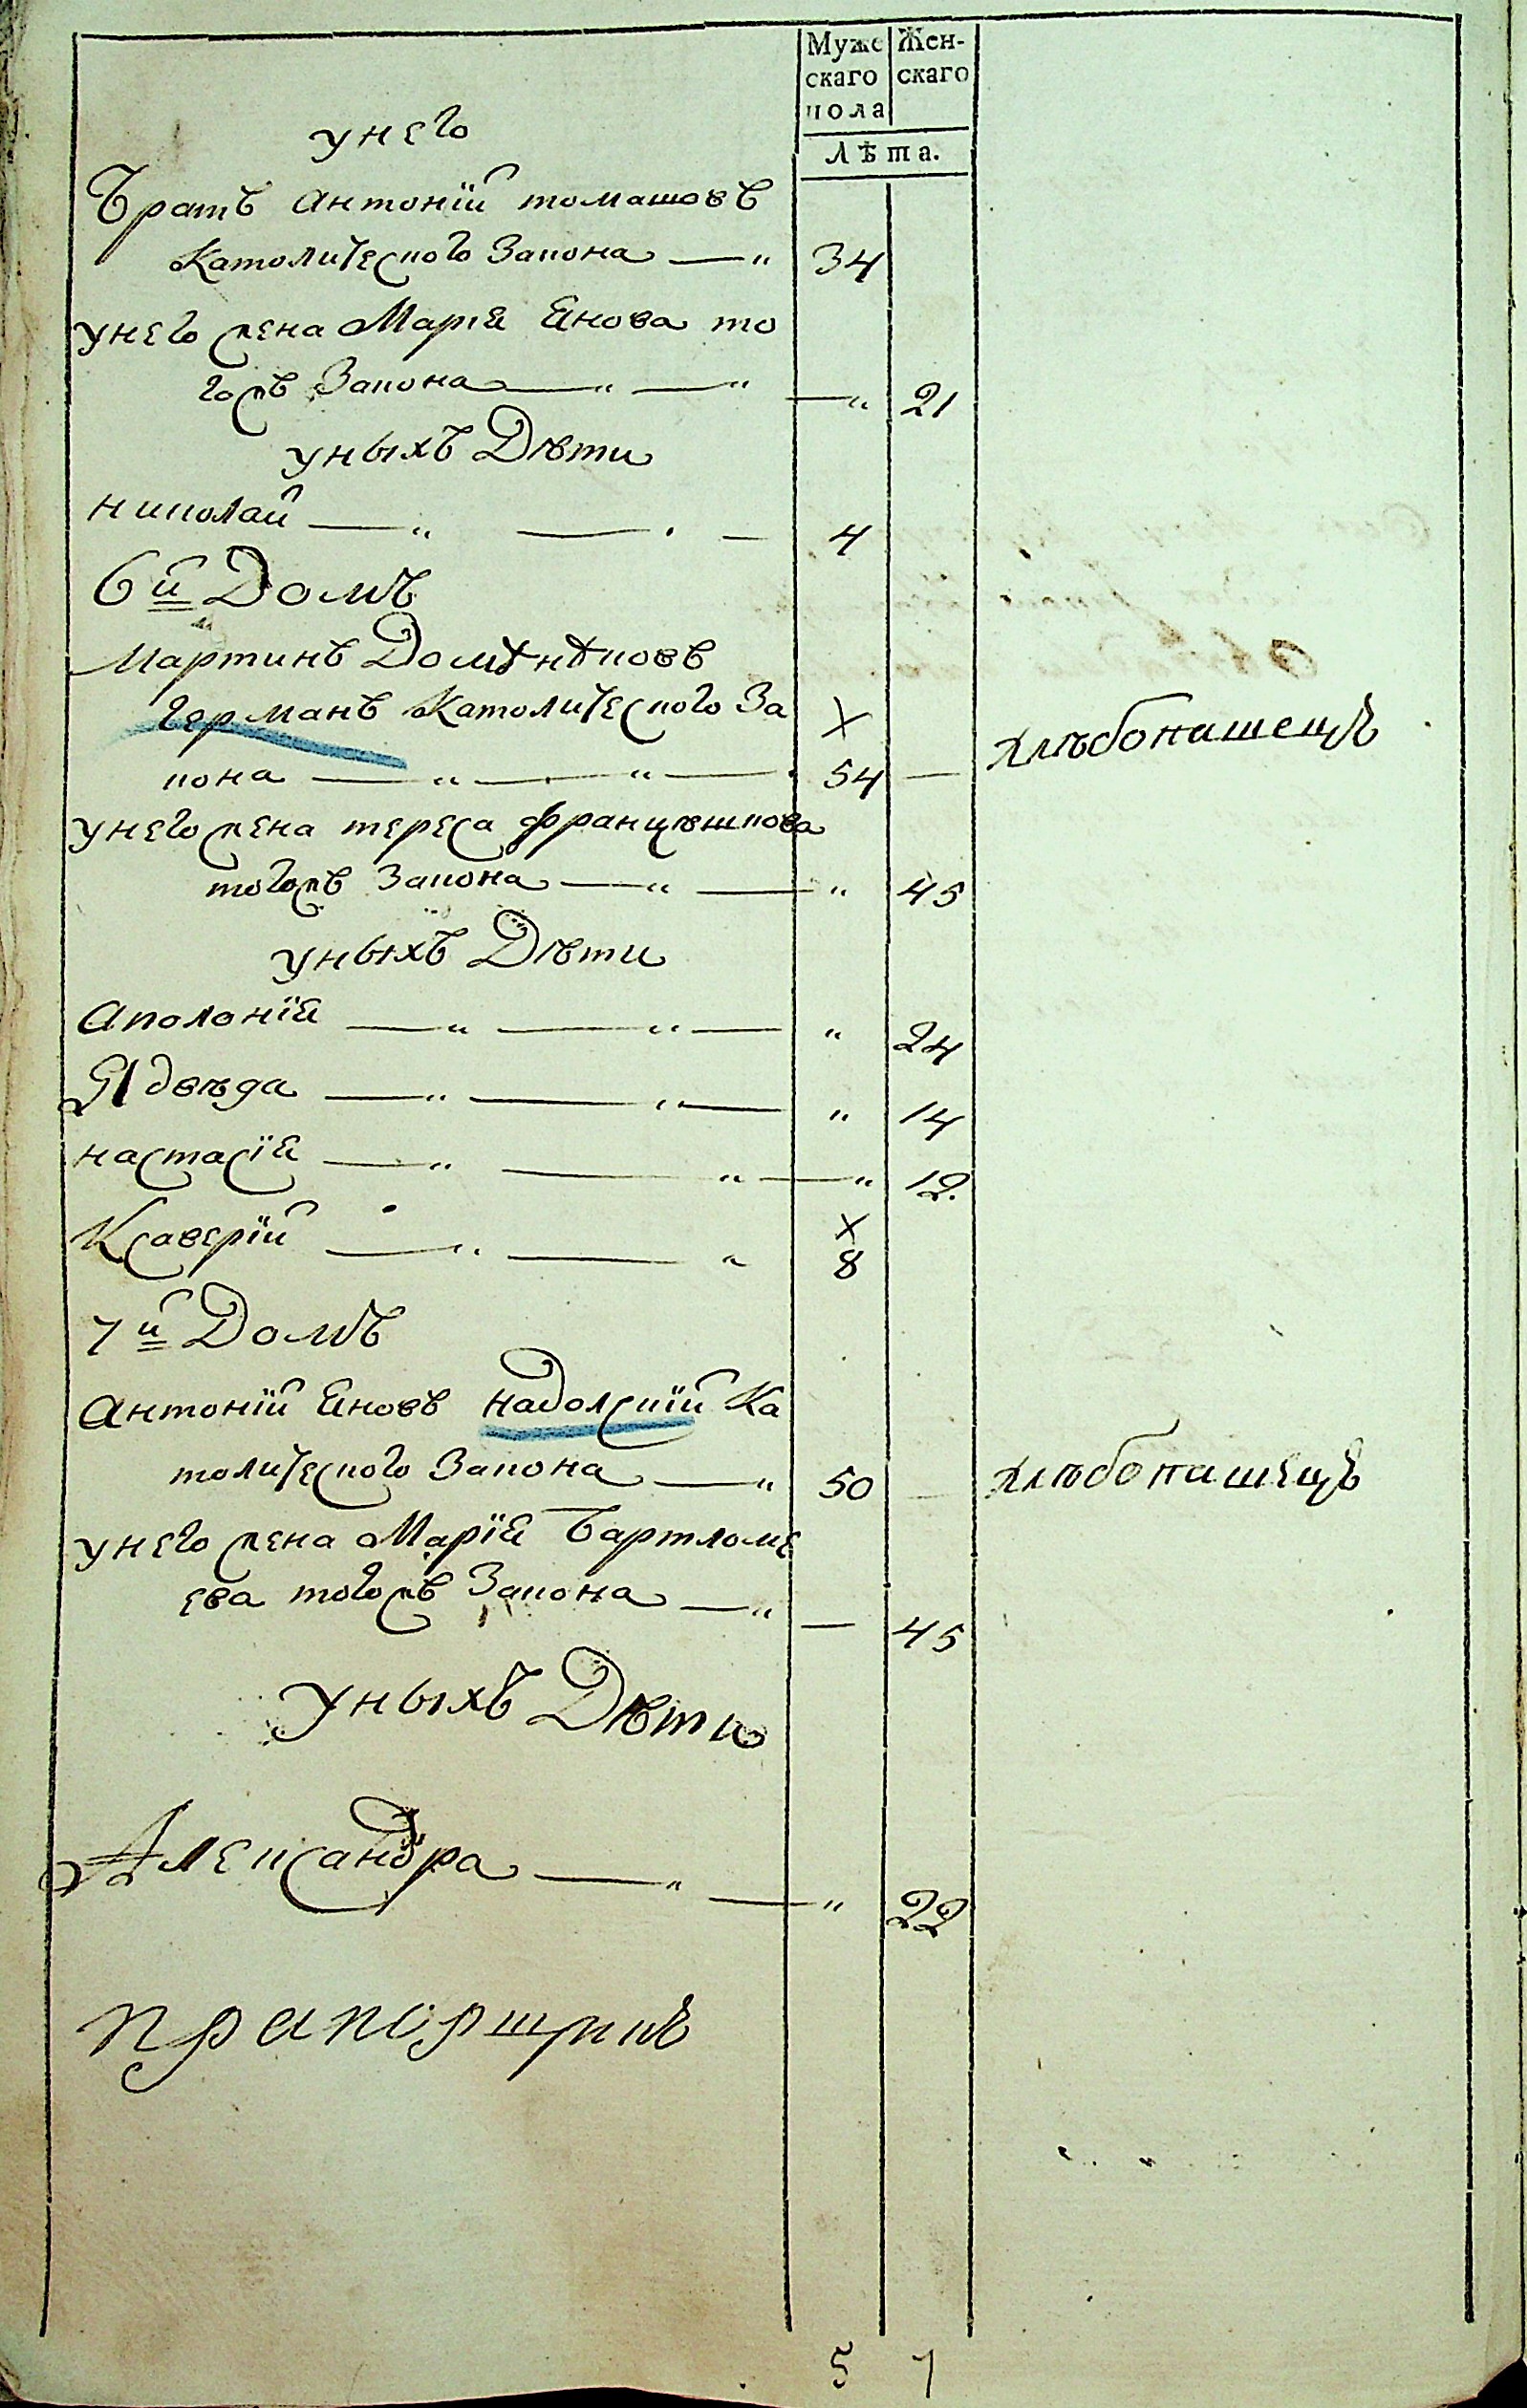 Муже Жен-
скаго скаго
пола
лѣта.
у него
Братъ антоній томашовъ
Католического Закона —„ 34
у него жена Марія Янова то
гожъ Закона —„ —„ —„ 21
у ныхъ Дѣти
николай —„ — . — 4
6й Домъ
Мартинъ Домѣнѣковъ
Германъ Католического За X
кона —„ —„ — 54 — хлѣбопашецъ
у него жена тереса францѣшкова
тогожъ Закона —„ — „ 45
у ныхъ Дѣти
Аполонія —„ —„ — „ 24
Ядвѣга —„ —„ — „ 14
настасія —„ —„ —„ 12
Ксаверій —„ — „ X 8
7й Домъ
Антоній Яновъ надолскій Ка
толического Закона —„ 50 — хлѣбопашецъ
у него жена Марія Бартломе
ева тогожъ Закона —„ — 45
у ныхъ Дѣти
Александра —„ —„ 22
прапорщикъ
5 7